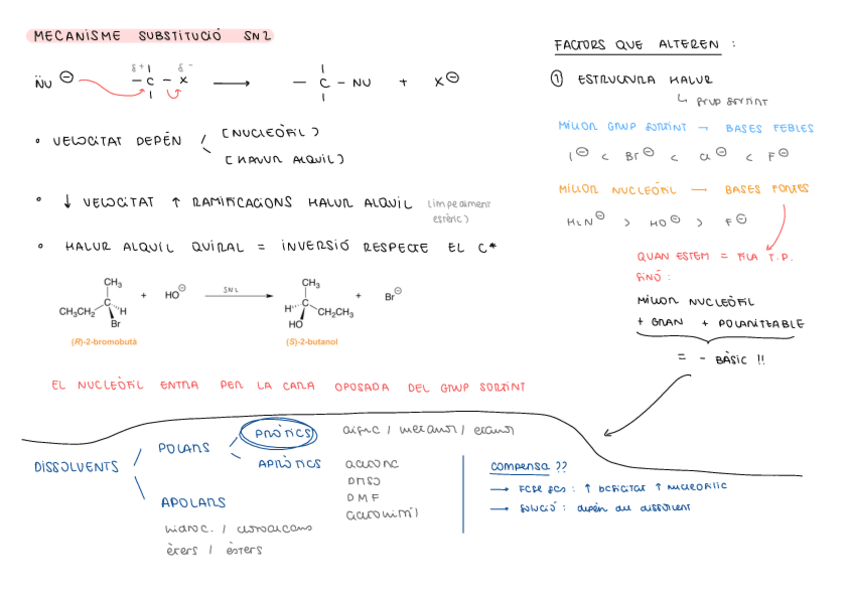 MECANISME SUBSTITUCIÓ SN2
δ+ δ-
N̈u ⊖ - C - X ⟶ - C - NU + X⊖
• VELOCITAT DEPÈN / [NUCLEÒFIL]
\ [HALUR ALQUIL]
• ↓ VELOCITAT ↑ RAMIFICACIONS HALUR ALQUIL (impediment
estèric)
• HALUR ALQUIL QUIRAL = INVERSIÓ RESPECTE EL C*
CH3 CH3CH2 C H Br + HO⊖ SN2 ⟶ CH3 H C CH2CH3 HO + Br⊖
(R)-2-bromobutà (S)-2-butanol
EL NUCLEÒFIL ENTRA PER LA CARA OPOSADA DEL GRUP SORTINT
FACTORS QUE ALTEREN :
① ESTRUCTURA HALUR
↳ grup sortint
MILLOR GRUP SORTINT → BASES FEBLES
I⊖ < Br⊖ < Cl⊖ < F⊖
MILLOR NUCLEÒFIL → BASES FORTES
H2N⊖ > HO⊖ > F⊖
QUAN ESTEM = FILA T.P.
SINÓ :
MILLOR NUCLEÒFIL
+ GRAN + POLARITZABLE
= - BÀSIC !!
DISSOLVENTS
POLARS
PRÒTICS aigua / metanol / etanol
APRÒTICS acetona
DMSO
DMF
acetonitril
APOLARS
hidroc. /
èters / èsters
compensa ??
→ : ↑ ↑
→ solució : depèn del dissolvent